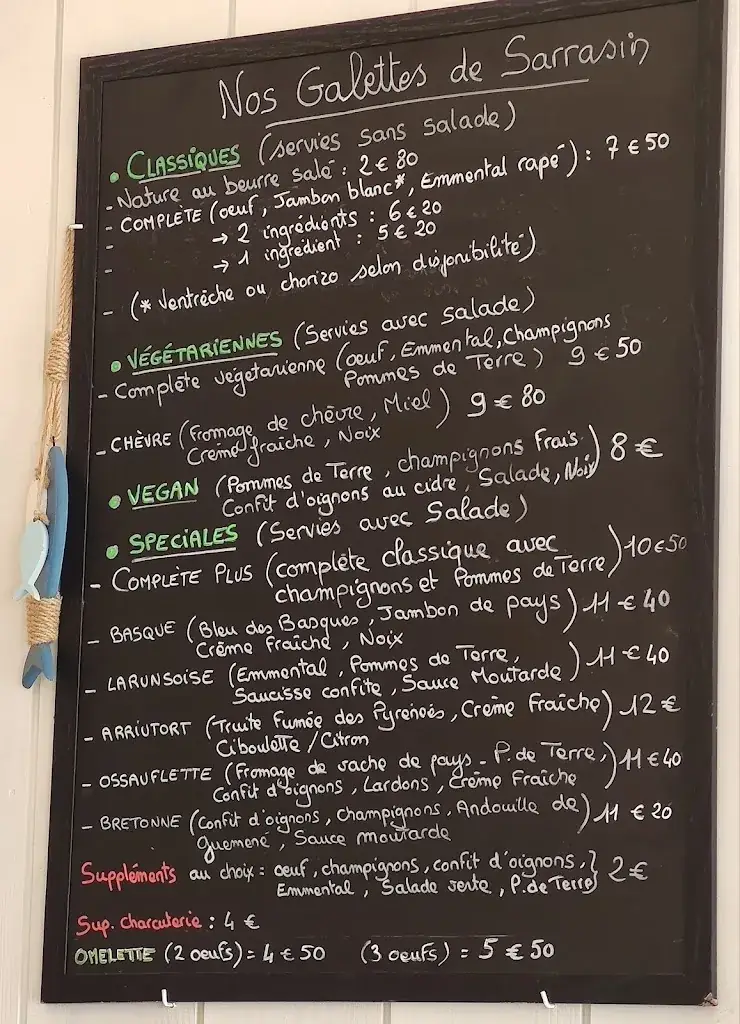 Nos Galettes de Sarrasin
• CLASSIQUES (servies sans salade)
- Nature au beurre salé : 2 € 80
- COMPLÈTE (oeuf, Jambon blanc*, Emmental rapé) : 7 € 50
- → 2 ingrédients : 6 € 20
- → 1 ingrédient : 5 € 20
- (* Ventrêche ou chorizo selon disponibilité)
• VÉGÉTARIENNES (Servies avec salade)
- Complète végétarienne (oeuf, Emmental, Champignons
Pommes de Terre) 9 € 50
- CHÈVRE (Fromage de chèvre, Miel) 9 € 80
Crème fraîche, Noix
• VEGAN (Pommes de Terre, champignons Frais) 8 €
Confit d'oignons au cidre, Salade, Noix
• SPECIALES (Servies avec Salade)
- COMPLÈTE PLUS (complète classique avec) 10 € 50
champignons et Pommes de Terre
- BASQUE (Bleu des Basques, Jambon de pays) 11 € 40
Crème Fraîche, Noix
- LARUNSOISE (Emmental, Pommes de Terre,) 11 € 40
Saucisse confite, Sauce Moutarde
- ARRIUTORT (Truite Fumée des Pyrénées, Crème Fraîche) 12 €
Ciboulette / Citron
- OSSAUFLETTE (Fromage de vache de pays - P. de Terre,) 11 € 40
Confit d'oignons, Lardons, Crème Fraîche
- BRETONNE (Confit d'oignons, Champignons, Andouille de) 11 € 20
guemené, Sauce moutarde
Suppléments au choix : oeuf, champignons, confit d'oignons, } 2 €
Emmental, Salade verte, P. de Terre
Sup. charcuterie : 4 €
OMELETTE (2 oeufs) = 4 € 50 (3 oeufs) = 5 € 50